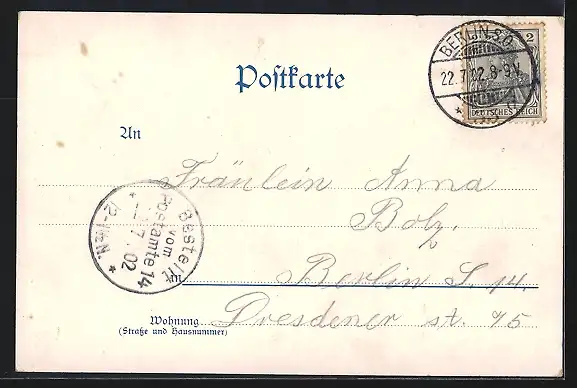 BERLIN S.O.
22.7.02.8-9V.
2
DEUTSCHES REICH
Postkarte
An
Fräulein Anna
Bolz
Bestellt
vom
Postamte 14
7.02
12-
Berlin S. 14.
in
Wohnung
(Straße und Hausnummer)
Dresdener st. 75